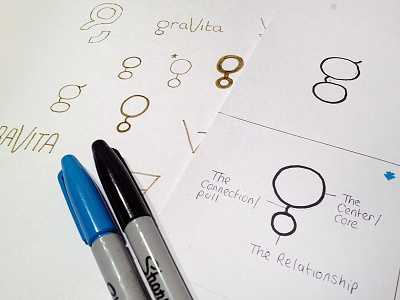 graVita
RAVITA
The
Connection/
pull
The
Center/
Core
The Relationship
Sharpie